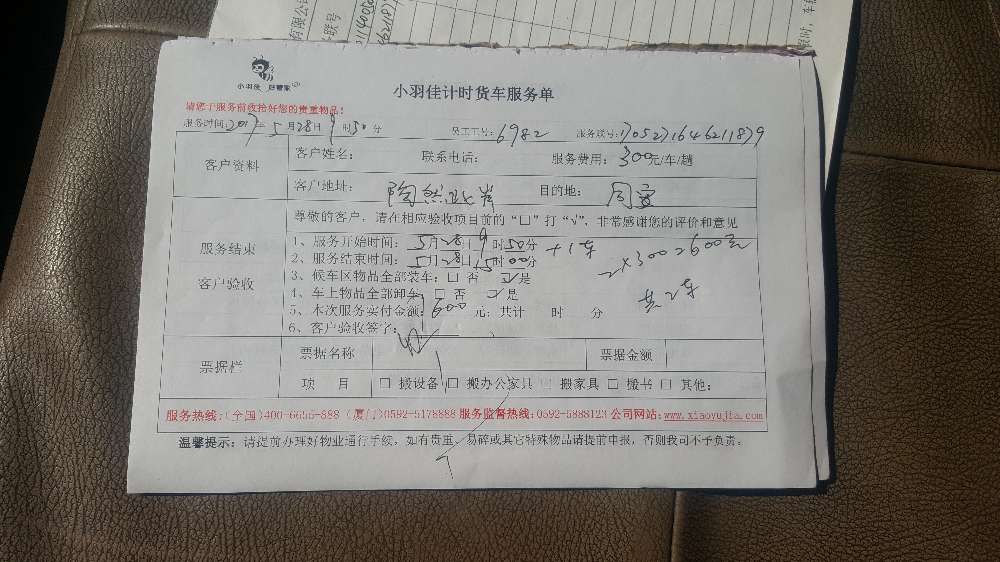 小羽佳 好管家
小羽佳计时货车服务单
请您于服务前收拾好您的贵重物品！
服务时间：2017年5月28日9时50分 员工工号：6982 服务联号：
客户资料 客户姓名： 联系电话： 服务费用：300元/车/趟
客户地址：陶然 目的地：同安
尊敬的客户，请在相应验收项目前的“口”打“√”，非常感谢您的评价和意见
服务结束
客户验收
1、服务开始时间：5月28日9时50分 +1车
2、服务结束时间：5月28日15时00分 2×300=600元
3、候车区物品全部装车：□ 否 ☑是
4、车上物品全部卸车：□ 否 ☑是 共2车
5、本次服务实付金额：600元；共计 时 分
6、客户验收签字：
票据栏 票据名称 票据金额
项 目 □ 搬设备 □ 搬办公家具 □ 搬家具 □ 搬书 □ 其他：
服务热线：(全国)400-6655-888 (厦门)0592-5178888 服务监督热线：0592-5888123 公司网站：www.xiaoyujia.com
温馨提示：请提前办理好物业通行手续，如有贵重、易碎或其它特殊物品请提前申报，否则我司不予负责。